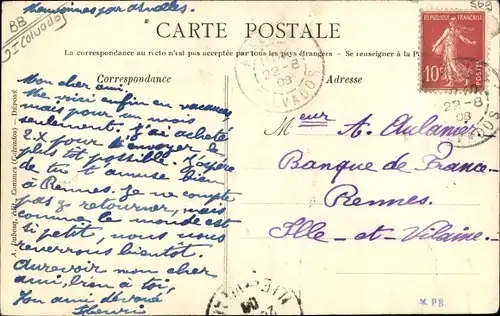 BB
CARTE POSTALE
La correspondance au recto n'est pas acceptée par tous les pays étrangers. — Se renseigner à la P
Correspondance
Adresse
Mon cher ami.
Me voici enfin en vacances
mais pour un mois
seulement. J'ai acheté
pour te envoyer le
plus tôt possible. J'espère
que tu t'amuse bien
à Rennes. Je ne compte
pas y retourner, mais
comme le monde est
si petit, nous nous
reverrons bientôt.
Au revoir mon cher
ami, bien à toi,
Ton ami dévoué
Henri
RÉPUBLIQUE FRANÇAISE
10c
POSTES
22-8
08
CALVADOS
22-8
08
Meur A. Aulanier
Banque de France
Rennes
Ille-et-Vilaine
* PR